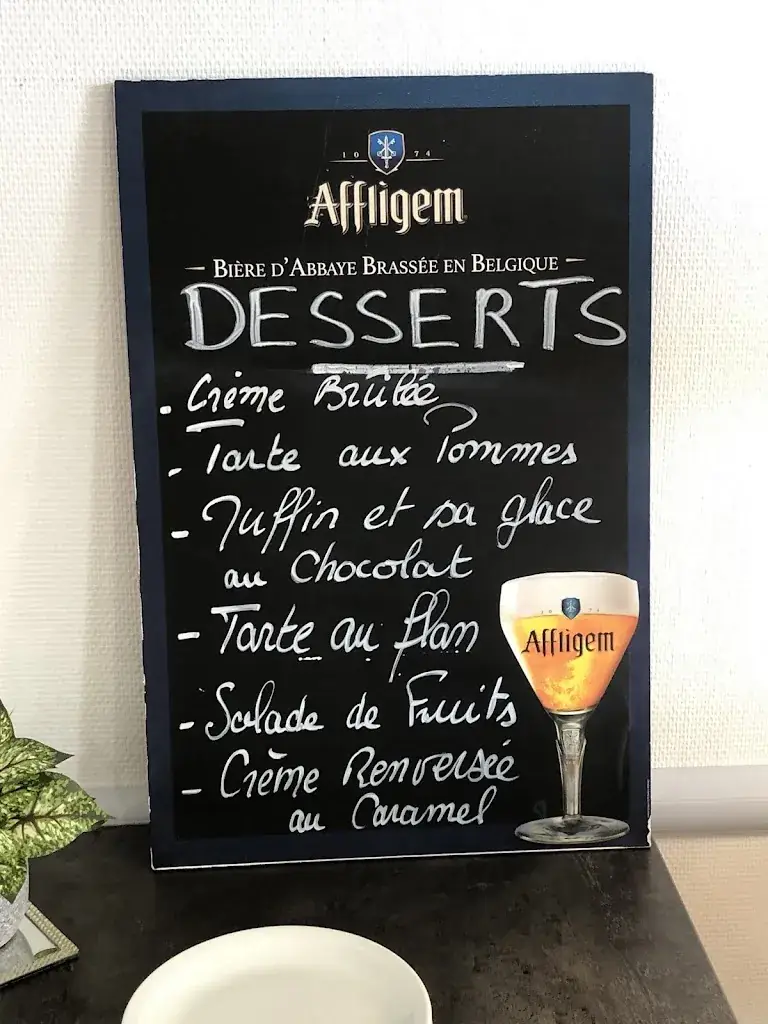 10 74
Affligem
— BIÈRE D'ABBAYE BRASSÉE EN BELGIQUE —
DESSERTS
. Crème Brûlée
- Tarte aux Pommes
- Muffin et sa glace
au Chocolat
- Tarte au flan
- Salade de Fruits
- Crème Renversée
au Caramel
10 74
Affligem